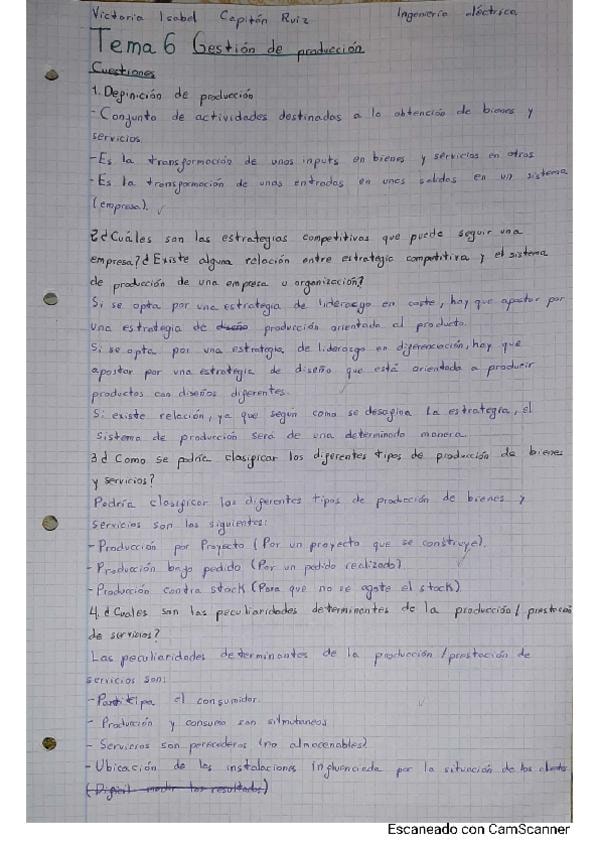 Victoria Isabel Capitán Ruiz Ingeniería eléctrica
Tema 6 Gestión de producción
Cuestiones
1. Definición de producción
- Conjunto de actividades destinadas a la obtención de bienes y
servicios.
- Es la transformación de unos inputs en bienes y servicios en otros
- Es la transformación de unas entradas en unas salidas en un sistema
(empresa).
2 ¿Cuáles son las estrategias competitivas que puede seguir una
empresa? ¿Existe alguna relación entre estrategia competitiva y el sistema
de producción de una empresa u organización?
Si se opta por una estrategia de liderazgo en coste, hay que apostar por
una estrategia de diseño producción orientada al producto.
Si se opta por una estrategia de liderazgo en diferenciación, hay que
apostar por una estrategia de diseño que está orientada a producir
productos con diseños diferentes.
Si existe relación, ya que según como se la estrategia, el
sistema de producción será de una determinada manera
3 ¿Como se podría clasificar los diferentes tipos de producción de bienes
y servicios?
Podría clasificar los diferentes tipos de producción de bienes y
servicios son los siguientes:
- Producción por Proyecto (Por un proyecto que se construye).
- Producción bajo pedido (Por un pedido realizado).
- Producción contra stock (Para que no se agote el stock)
4. ¿Cuales son las peculiaridades determinantes de la producción / prestación
de servicios?
Las peculiaridades determinantes de la producción / prestación de
servicios son:
- Participa el consumidor.
- Producción y consumo son
- Servicios son perecederos (no almacenables)
- Ubicación de las instalaciones influenciada por la situación de los clientes
(Difícil medir los resultados)
Escaneado con CamScanner